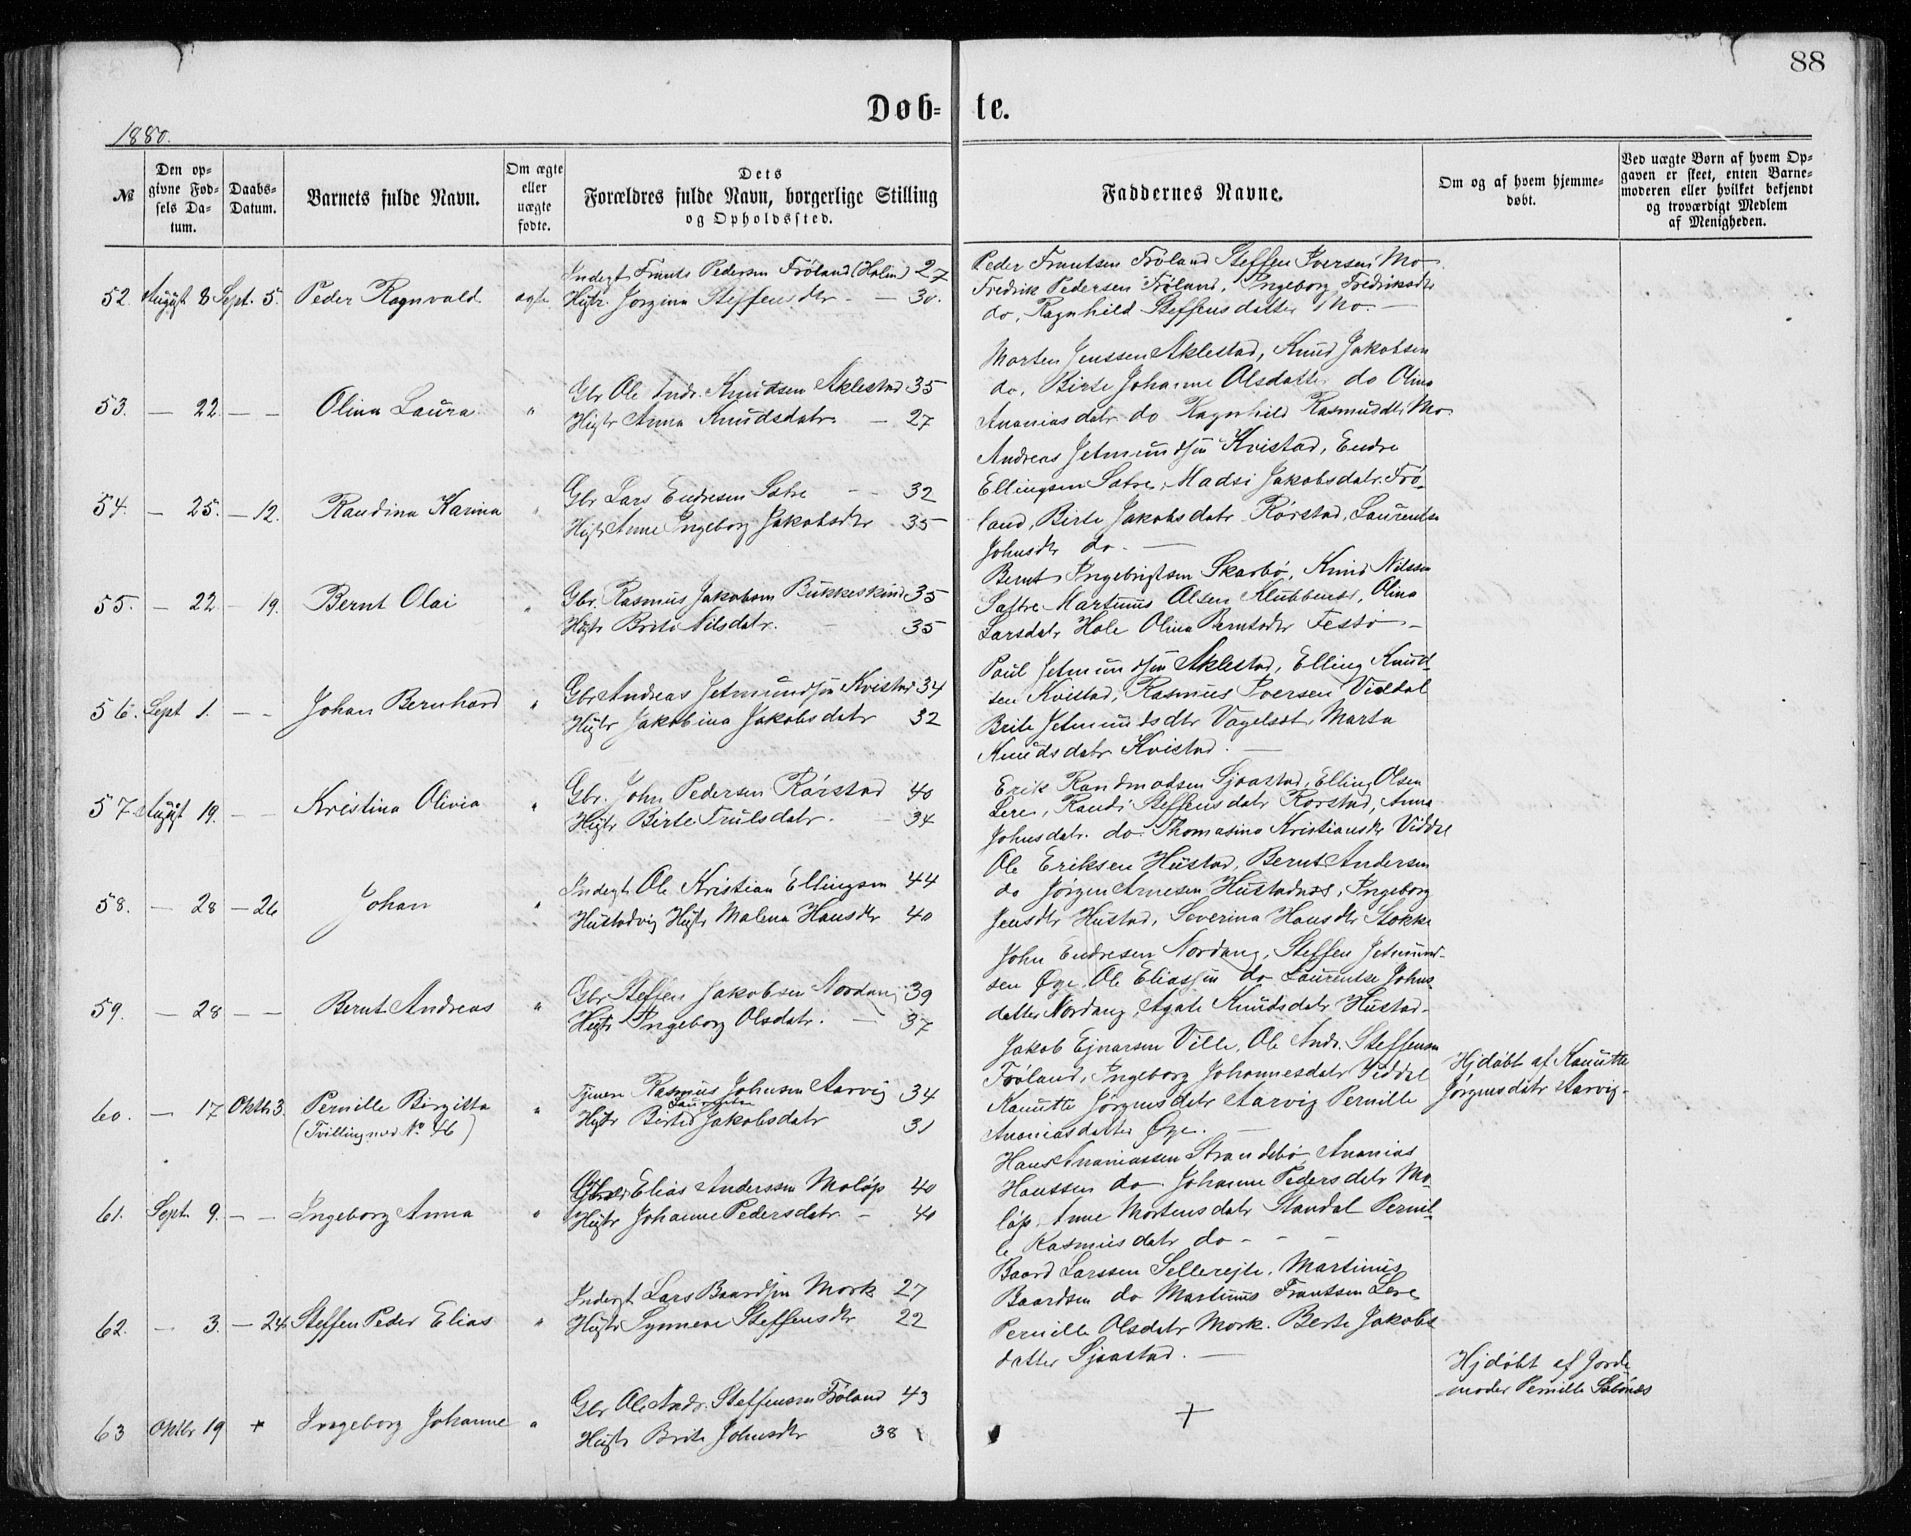 88
Døb= te.
1880.
№
Den op=
givne Fød=
sels Da=
tum.
Daabs=
Datum.
Barnets fulde Navn.
Om ægte
eller
uægte
fødte.
Dets
Forældres fulde Navn, borgerlige Stilling
og Opholdssted.
Faddernes Navne.
Om og af hvem hjemme=
døbt.
Ved uægte Børn af hvem Op=
gaven er skeet, enten Barne=
moderen eller hvilket bekjendt
og troværdigt Medlem
af Menigheden.
52. August 8 Sept. 5. Peder Ragnvald ægte
Inderst Frants Pedersen Fröland (Holm) 27
Hustr. Jorgina Steffensdtr - - 30.
Peder Frantsen Fröland Steffen Iversen Mo
Fredrik Pedersen Fröland, Ingeborg Fredriksdtr
do, Ragnhild Steffensdatter Mo. -
53. - 22. - - Olina Laura "
Gbr Ole Andr. Knudsen Aklestad 35
Hustr Anna Knudsdatr. - 27
Morten Jenssen Aklestad, Knud Jakobsen
do, Birte Johanne Olsdatter do Olina
Ananiasdatr do Ragnhild Rasmusdtr Mo
54. - 25. - 12. Raudina Karina "
Gbr Lars Endresen Sætre - - 32
Hustr Anne Ingeborg Jakobsdtr 35
Andreas Jetmundsøn Kvistad, Endre
Ellingsen Sætre, Madsi Jakobsdatr. Frö-
land, Berte Jakobsdatr Rörstad, Laurentse
Johnsdtr do. -
55. - 22 - 19. Bernt Olai "
Gbr. Rasmus Jakobsen Bukkeskind 35
Hustr Brite Nilsdatr. - 35
Bernt Ingebrigtsen Skarbö, Knud Nilssen
Sætre Martinus Olsen Klubbenes, Olina
Larsdatr Hole Olina Berntsdtr Festö -
56. Sept 1. - - Johan Bernhard "
Gbr Andreas Jetmundsøn Kvistad 34
Hustr Jakobina Jakobsdatr 32
Paul Jetmundsøn Aklestad, Elling Knud-
sen Kvistad, Rasmus Iversen Viddal
Brite Jetmundsdtr Vagelsæt, Marta
Knudsdatr Kvistad. -
57. August 19. - - Kristina Olivia "
Gbr. John Pedersen Rörstad 40
Hustr Birte Trulsdatr. - 34
Erik Randmodsen Sjaastad, Elling Olsen
Lere, Raudi Steffensdatr Rorstad, Anna
Johnsdatr. do. Thomasine Kristiansdtr Viddal
58. - 28 - 26 Johan "
Inderst. Ole Kristian Ellingsen 44
Hustadvig Hustr Malena Hansdtr 40
Ole Eriksen Hustad, Bernt Andersen
do Jörgen Arnesen Hustadnes, Ingeborg
Jensdtr Hustad, Severina Hansdtr Stokke
59. - 28 - - Bernt Andreas "
Gbr Steffen Jakobsen Nordang 39
Hustr Ingeborg Olsdatr. - 37
John Endresen Nordang, Steffen Jetmund-
sen Øye Ole Eliassøn do Laurentse Johns
datter Nordang, Agate Knudsdatr Hustad-
60. - 17 Oktb 3. Pernille Birgitta "
(Tvilling med No 46)
Tjener Rasmus Johnsen Aarvig 34
Laurentse
Hustr Birte Jakobsdatr 31
Jakob Ejnarsen Ville, Ole Andr. Steffensen
Fröland, Ingeborg Johannesdatr Viddal
Kanutte Jørgensdatr Aarvig Pernille
Ananiasdatter Øye. -
Hjdöbt af Kanutte
Jørgensdatr Aarvig-
61. Sept. 9. - - Ingeborg Anna "
Gbr Elias Anderssen Molöp 40
Hustr Johanne Pedersdatr - 40
Hans Ananiassen Strandebö, Ananias
Hanssen do. Johanne Pedersdatr Mo
löp, Anne Mortensdatr Standal Pernil-
le Rasmusdatr do - - -
62. - 3. - 24 Steffen Peder Elias "
Inderst Lars Baardsøn Mork 27
Hustr Synneve Steffensdtr 22
Baard Larssen Sellerejte, Martinus
Baardsen do Martinus Frantsen Lere
Pernille Olsdatr Mork. Berte Jakobs
datter Sjaastad. -
63 Oktbr 19 + Ingeborg Johanne "
Gbr Ole Andr. Steffensen Fröland 43
Hustr Brite Johnsdtr 38
+
Hjdöbt af Jorde
moder Pernille Solbnes